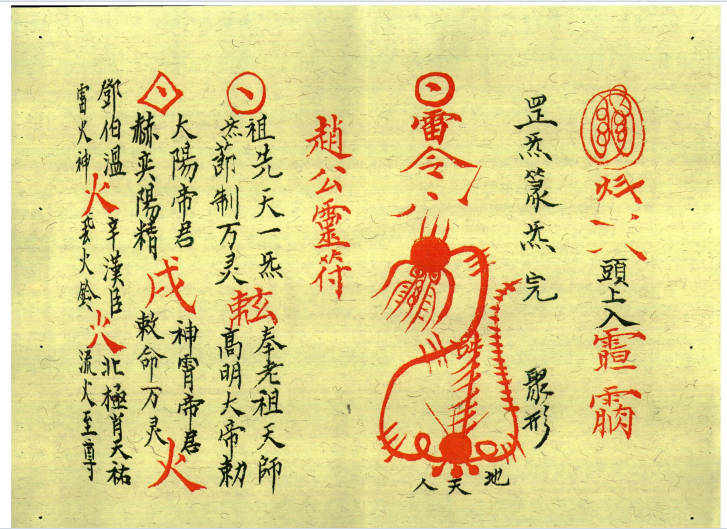 頭上入
罡炁篆炁完 聚形
雷令
地天人
趙公靈符
祖先天一炁 奉老祖天師
炁 制万灵 高明大帝勅
太陽帝君 神霄帝君
赫奕陽精 戌 敕命万灵 火
鄧伯溫 辛漢臣 北極肖天祐
雷火神 火 火鈴 火 流火至尊